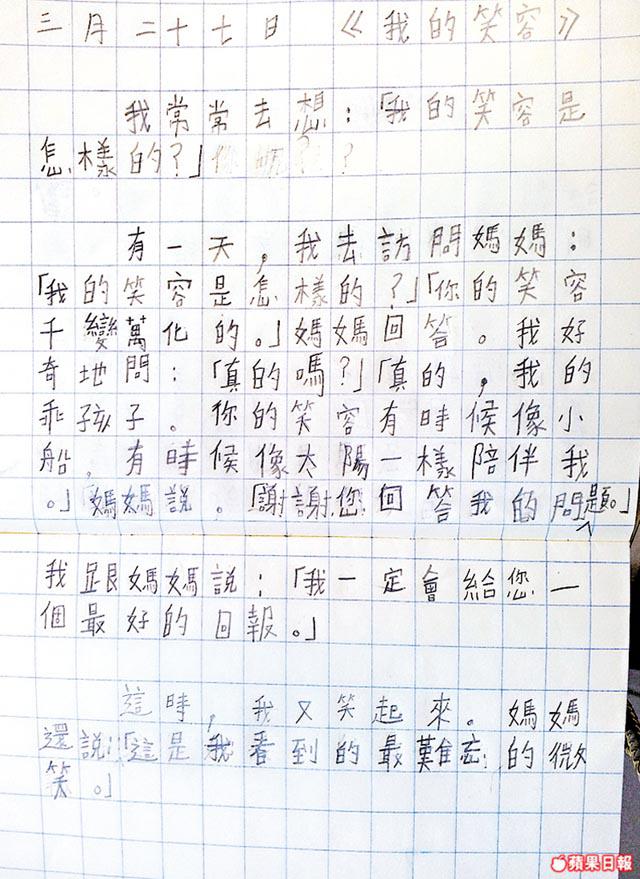 三月二十七日 《我的笑容》
我常常去想：「我的笑容是
怎樣的？」你呢？？
有一天，我去訪問媽媽：
「我的笑容是怎樣的？」「你的笑容
千變萬化的。」媽媽回答。我好
奇地問：「真的嗎？」「真的，我的
乖孩子。你的笑容有時候像小
船，有時候像太陽一樣陪伴我
。」媽媽説。「謝謝您回答我的問題。」
我跟媽媽説：「我一定會給您一
個最好的回報。」
這時，我又笑起來。媽媽
還説：「這是我看到的最難忘的微
笑。」
蘋果日報